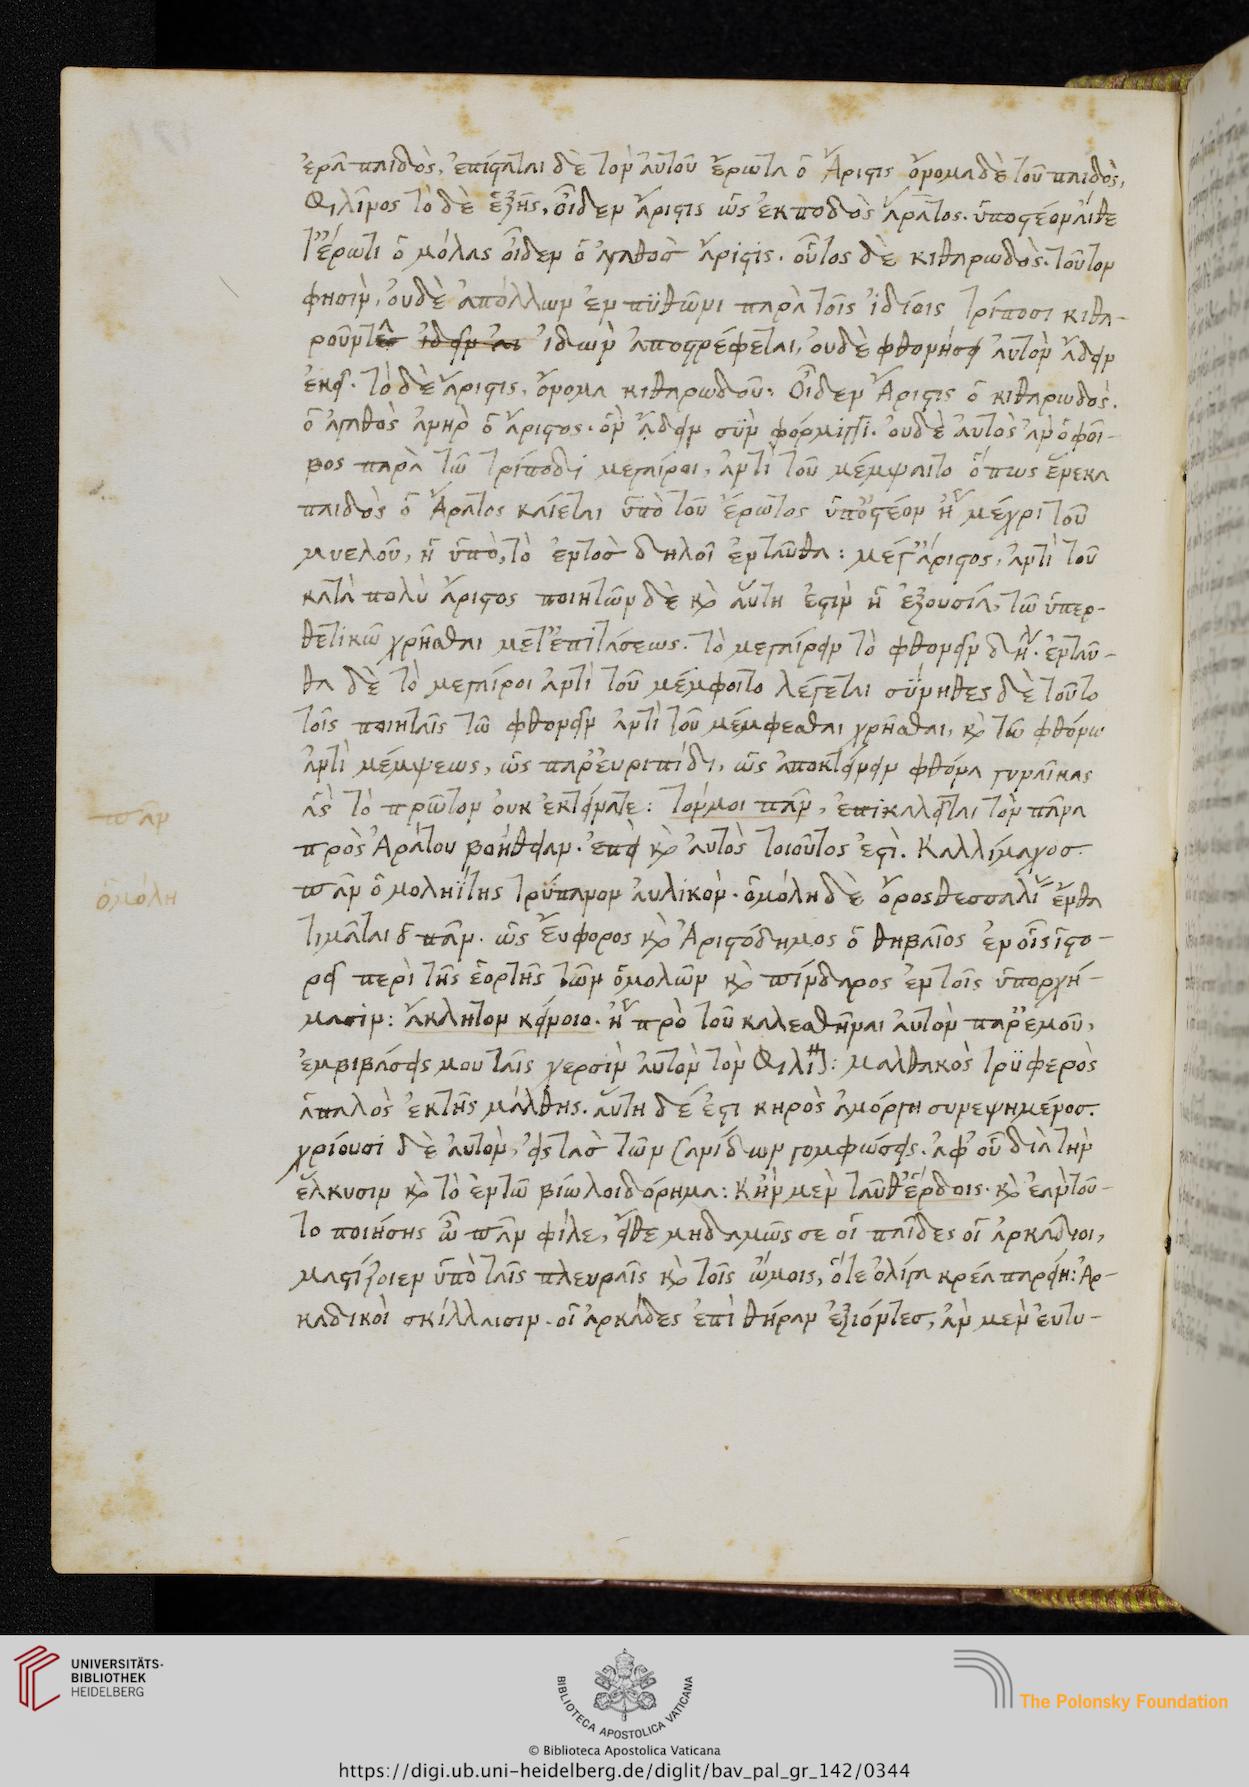 ἐρᾶ παιδὸς, ἐπίσταται δὲ τὸν αὐτοῦ ἔρωτα ὁ Ἄριστις ὄνομα δὲ τοῦ παιδὸς,
Φιλῖνος τὸ δὲ ἑξῆς, οἶδεν ἄριστις ὡς ἐκ παιδὸς ἄρατος. ὑπ᾽ ὀστέον αἴθετ᾽
ἔρωτι ὁ μόλας οἶδεν ὁ ἀγαθὸς ἄριστις. οὗτος δὲ κιθαρωδὸς. τοῦτον
φησὶν, οὐδὲ ἀπόλλων ἐν πϋθῶνι παρὰ τοῖς ἰδίοις τρίποσι κιθα-
ροῦντα ἰδὼν ἀποστρέφεται, οὐδὲ φθονήσει αὐτὸν ἄδειν
ἐκεῖ. τὸ δὲ ἄριστις, ὄνομα κιθαρωδοῦ: Οἶδεν Ἄριστις ὁ κιθαρωδὸς.
ὁ ἀγαθὸς ἀνὴρ ὁ ἄριστος. ὃν ἄδειν σὺν φόρμιγγι. οὐδὲ αὐτὸς ἂν ὁ φοῖ-
βος παρὰ τῶ τρίποδι μεγαίροι, ἀντὶ τοῦ μέμψαιτο ὅπως ἕνεκα
παιδὸς ὁ Ἄρατος καίεται ὑπὸ τοῦ ἔρωτος ὑπ᾽ ὀστέον ἢ μέχρι τοῦ
μυελοῦ, ἢ ὑπὸ, τὸ ἐντὸς δηλοῖ ἐνταῦθα: μέγ᾽ ἄριστος, ἀντὶ τοῦ
κατὰ πολὺ ἄριστος ποιητῶν δὲ καὶ αὕτη ἐστὶν ἡ ἐξουσία, τῶ ὑπερ-
θετικῶ χρῆσθαι μετ᾽ ἐπιτάσεως. τὸ μεγαίρειν τὸ φθονεῖν δη. ἐνταῦ-
θα δὲ τὸ μεγαίροι ἀντὶ τοῦ μέμφοιτο λέγεται σύνηθες δὲ τοῦτο
τοῖς ποιηταῖς τῶ φθονεῖν ἀντὶ τοῦ μέμφεσθαι χρῆσθαι, καὶ τῶ φθόνω
ἀντὶ μέμψεως, ὡς παρ᾽ εὐριπίδι, ὡς ἀποκτείνειν φθόνα γυναῖκας
ἃς τὸ πρῶτον οὐκ ἐκτείνατε: τόν μοι πᾶν, ἐπικαλεῖται τὸν πᾶνα
πρὸς Ἀράτου βοήθειαν. ἐπεὶ καὶ αὐτὸς τοιοῦτος ἐστὶ. Καλλίμαχος.
πᾶν ὁ μοληΐτης τρύπανον αὐλικὸν. ὁμόλη δὲ ὄρος θεσσαλί ἔνθα
τιμᾶται ὁ πᾶν. ὡς Ἔυφορος καὶ Ἀριστόδημος ὁ θηβαῖος ἐν οἷς ἱστο-
ρεῖ περὶ τῆς ἑορτῆς τῶν ὁμολῶν καὶ πίνδαρος ἐν τοῖς ὑπορχή-
μασιν: ἄκλητον κείνοιο. ἢ πρὸ τοῦ καλεσθῆναι αὐτὸν παρ᾽ ἐμοῦ,
ἐμβιβάσεις μου ταῖς χερσὶν αὐτὸν τὸν Φιλῖ: μαλθακὸς τρϋφερὸς
ἁπαλὸς ἐκ τῆς μάλθης. αὕτη δέ ἐστι κηρὸς ἀμόργη συνεψημένος.
χρίουσι δὲ αὐτὸν, εἰς τὰς τῶν σανίδων γομφώσεις. ἀφ᾽ οὗ διὰ τὴν
ἕλκυσιν καὶ τὸ ἐν τῶ βίω λοιδόρημα: Κἢν μὲν ταῦθ᾽ ἔρδοις. καὶ ἐὰν τοῦ-
το ποιήσης ὦ πᾶν φίλε, εἴθε μηδαμῶς σε οἱ παῖδες οἱ ἀρκάδιοι,
μαστίζοιεν ὑπὸ ταῖς πλευραῖς καὶ τοῖς ὤμοις, ὅτε ὀλίγα κρέα παρείη: Ἀρ-
καδικοὶ σκίλλαισιν. οἱ ἀρκάδες ἐπὶ θήραν ἐξιόντες, ἂν μὲν ἐυτυ-
πᾶν
ὁμόλη
UNIVERSITÄTS-
BIBLIOTHEK
HEIDELBERG
BIBLIOTECA APOSTOLICA VATICANA
The Polonsky Foundation
© Biblioteca Apostolica Vaticana
https://digi.ub.uni-heidelberg.de/diglit/bav_pal_gr_142/0344